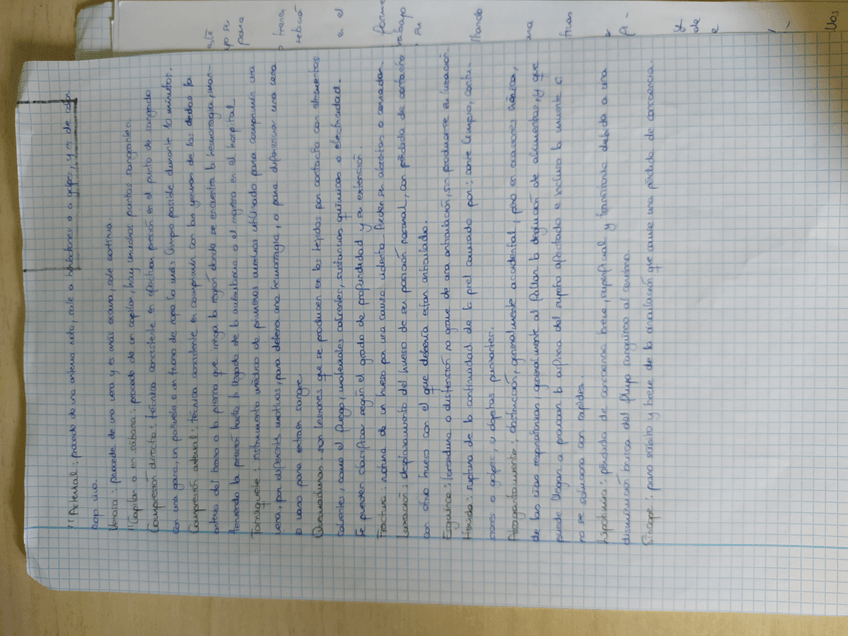 "Arterial: procede de una arteria rota, sale a borbotones o a golpes, y es de color
rojo vivo.
Venosa: procede de una vena y es más oscura, sale continua.
"Capilar o en sábana: procede de un capilar, hay muchos puntos sangrantes.
Compresión directa: técnica consistente en efectuar presión en el punto de sangrado
con una gasa, un pañuelo o un trozo de ropa lo más limpio posible durante 10 minutos.
Compresión arterial: técnica consistente en comprimir con las yemas de los dedos la
arteria del brazo o la pierna que irriga la región donde se encuentra la hemorragia, man-
teniendo la presión hasta la llegada de la ambulancia o el ingreso en el hospital.
Torniquete: instrumento médico de primeros auxilios utilizado para comprimir una
vena, por diferentes motivos, para detener una hemorragia, o para diferenciar una vena
o vaso para extraer sangre.
Quemaduras: son lesiones que se producen en los tejidos por contacto con elementos
calientes, como el fuego, materiales calientes, sustancias químicas o electricidad.
Se pueden clasificar según el grado de profundidad y su extensión.
Fractura: rotura de un hueso por una causa violenta. Pueden ser abiertas o cerradas.
Luxación: desplazamiento del hueso de su posición normal, con pérdida de contacto
con otro hueso con el que debería estar articulado.
Esguince: torcedura o distensión no grave de una articulación, sin producirse su luxación.
Herida: ruptura de la continuidad de la piel causada por: cortes limpios, contu-
siones o golpes, u objetos punzantes.
Atragantamiento: obstrucción, generalmente accidental, pero en ocasiones
de las vías respiratorias, generalmente al fallar la deglución de alimentos, y que
puede llegar a provocar la asfixia del sujeto afectado e incluso la muerte si
no se soluciona con rapidez.
Lipotimia: pérdida de conciencia breve, superficial y transitoria debida a una
disminución brusca del flujo sanguíneo al cerebro.
Síncope: paro súbito y breve de la circulación que causa una pérdida de conciencia.